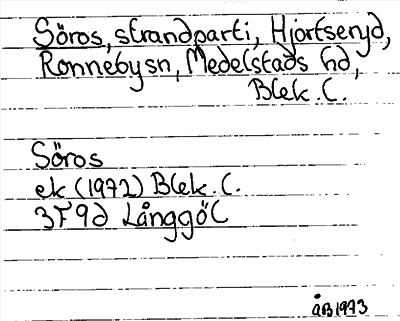 Söros, strandparti, Hjortseryd,
Ronnebysn, Medelstads hd,
Blek. C.
Söros
ek (1972) Blek. C.
3F 9d Långgöl
ÅB 1973